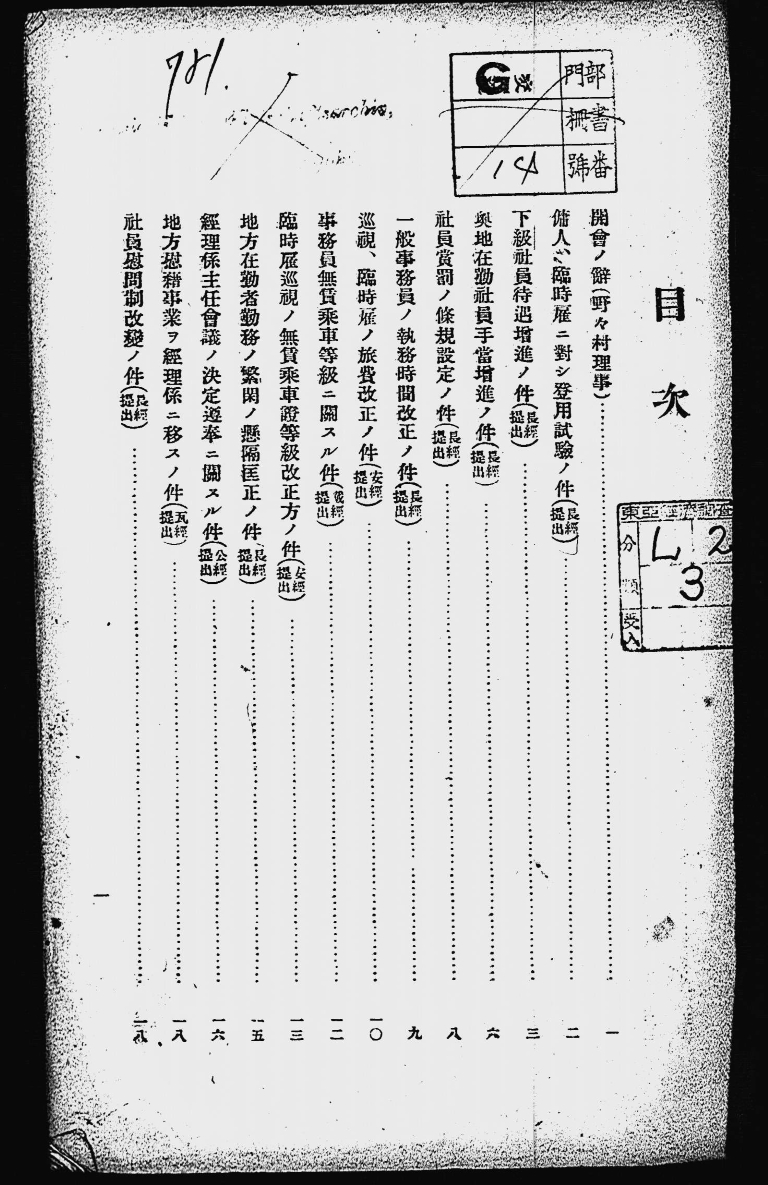 目次
開會ノ辭(野々村理事)……一
傭人、臨時雇ニ對シ登用試驗ノ件(長經提出)……二
下級社員待遇增進ノ件(長經提出)……三
奧地在勤社員手當增進ノ件(長經提出)……六
社員賞罰ノ條規設定ノ件(長經提出)……八
一般事務員ノ執務時間改正ノ件(長經提出)……九
巡視、臨時雇ノ旅費改正ノ件(安經提出)……一〇
事務員無賃乘車等級ニ關スル件(經提出)……一二
臨時雇巡視ノ無賃乘車證等級改正方ノ件(安經提出)……一三
地方在勤者勤務ノ繁閑ノ懸隔匡正ノ件(長經提出)……一五
經理係主任會議ノ決定遵奉ニ關スル件(公經提出)……一六
地方慰藉事業ヲ經理係ニ移スノ件(瓦經提出)……一八
社員慰問制改變ノ件(長經提出)……一八
一
部門
書柵
番號 14
781.
分類 L 2
3
受入